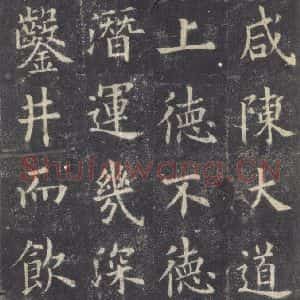 咸陳大道
上徳不徳
潛運幾深
鑿井而飲
Shufawang.CN